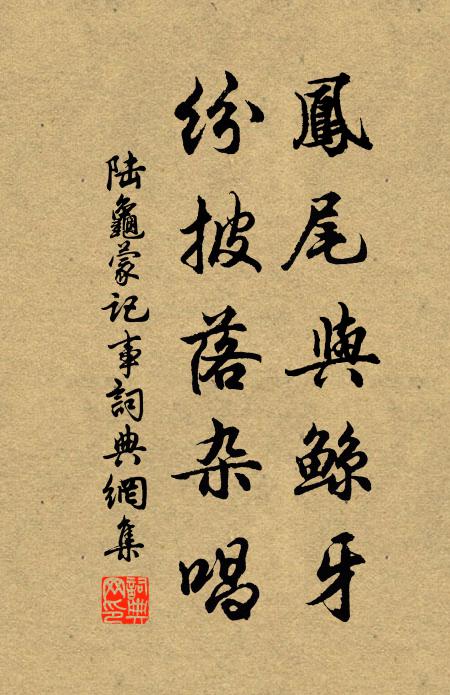 鳳尾與鯨牙
紛披落杂唱
陸龜蒙記事詞典網集
詞典網印